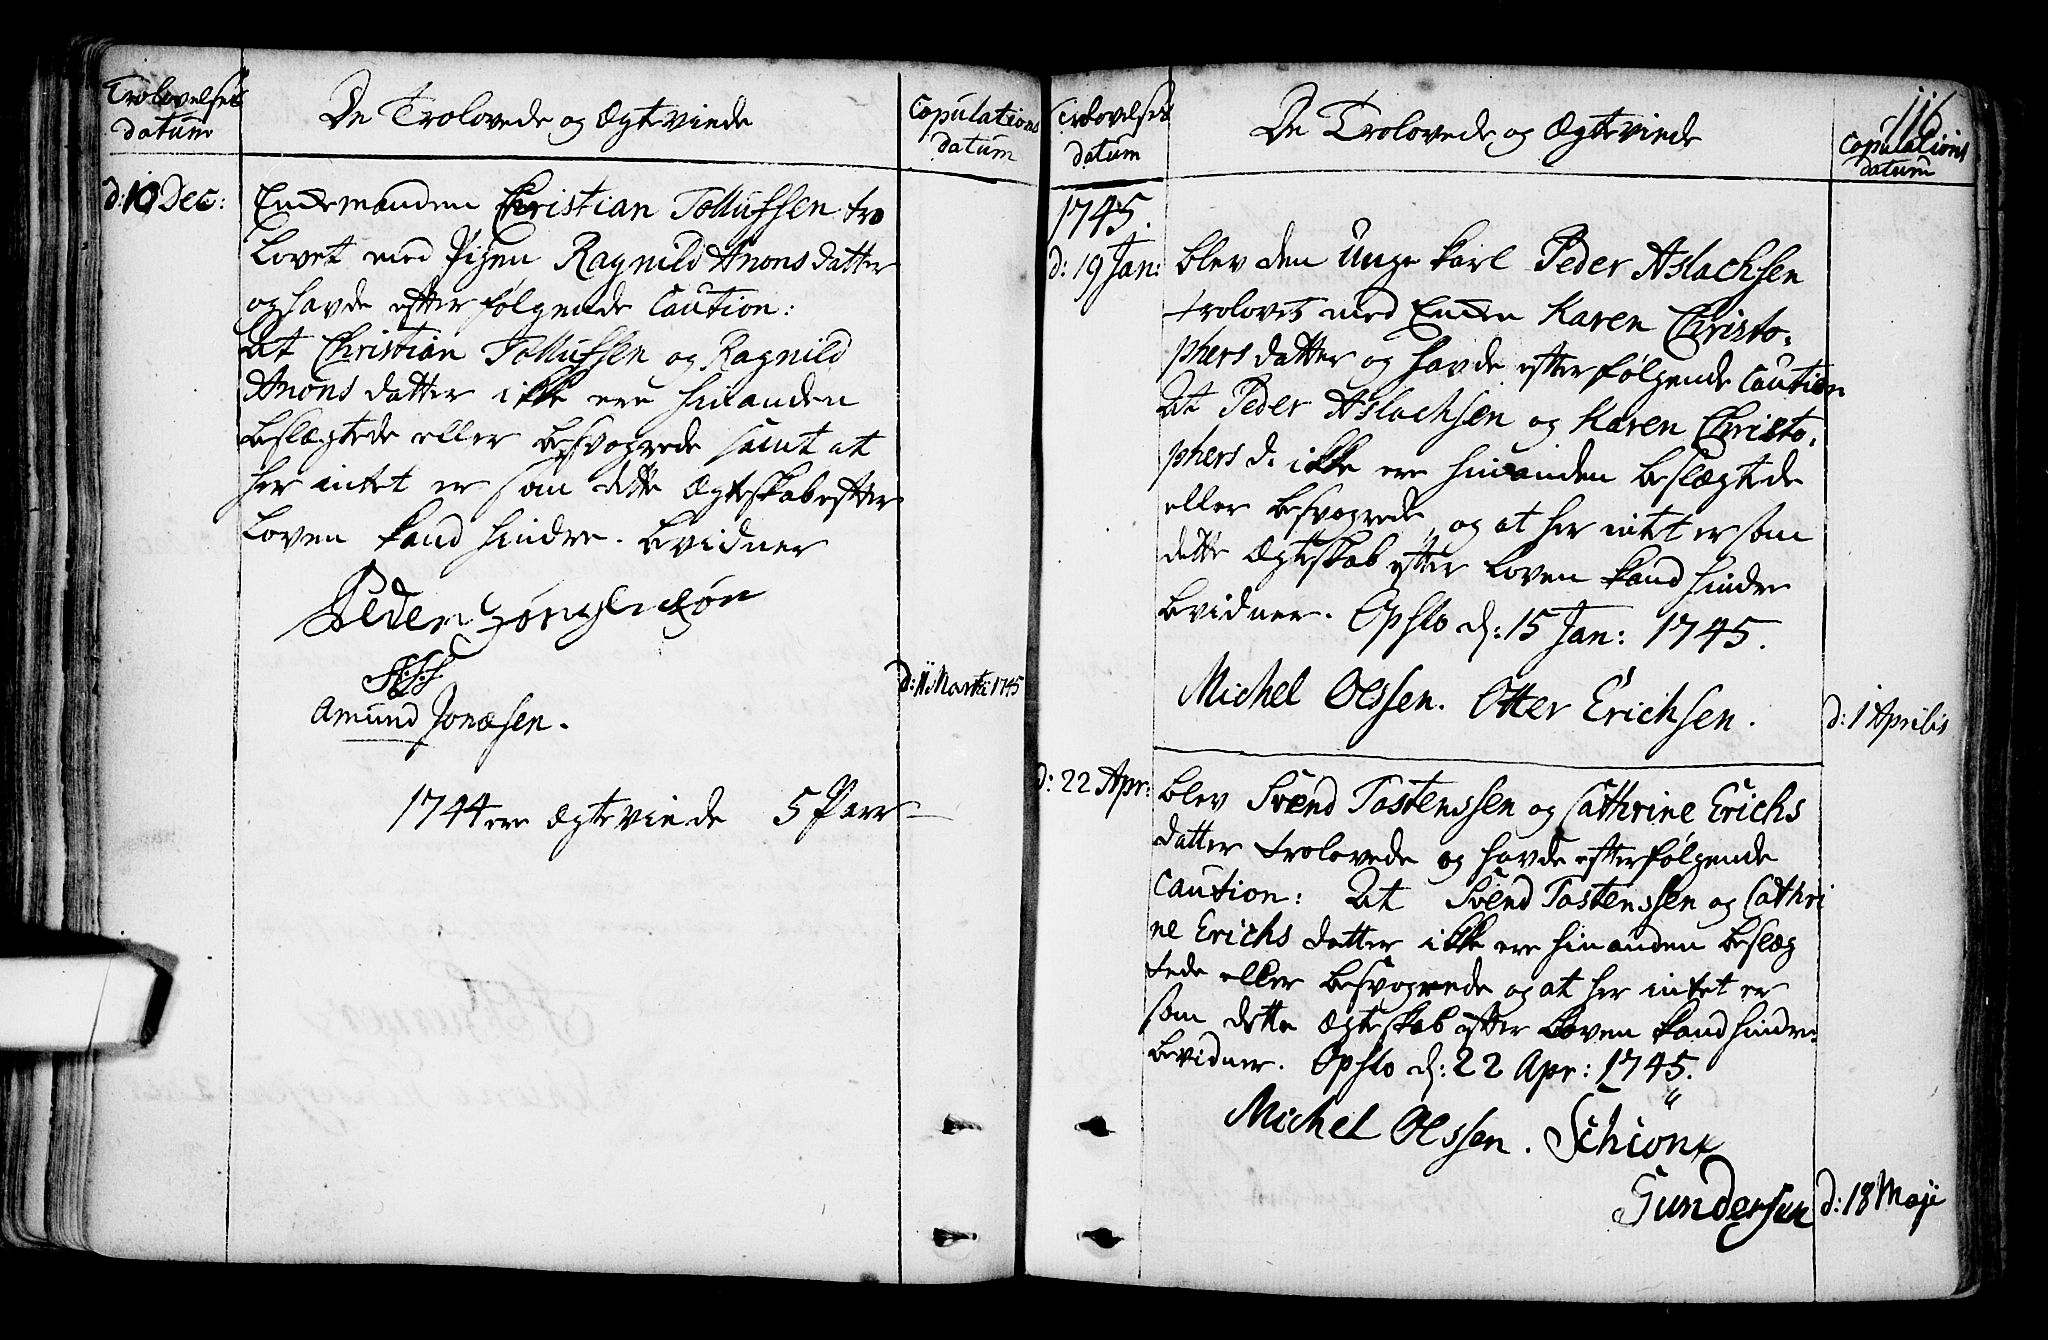 Trolovelses
datum
De Trolovede og Ægteviede
Copulations
datum
d: 10 Dec:
Enckemanden Christian Tollufsen tro
lovet med Pigen Ragnild Anons datter
og havde efterfølgende Caution:
At Christian Tollufsen og Ragnild
Anons datter ikke ere hinanden
beslægtede eller besvogrede samt at
her intet er som dette Ægteskab efter
Loven kand hindre. bevidner
Peder
Amund Jonæsen.
d: 11 Martii 1745
1744 ere ægteviede 5 Parr
116
Trolovelses
datum
De Trolovede og Ægteviede
Copulations
datum
1745.
d: 19 Jan:
blev den Unge karl Peder Aslachsen
trolovet med Encken Karen Christo-
phers datter og havde efterfølgende Caution
At Peder Aslachsen og Karen Christo-
phers d. ikke ere hinanden beslægtede
eller besvogrede, og at her intet er som
dette Ægteskab efter Loven kand hindre
bevidner. Opslo d: 15 Jan: 1745.
Michel Olssen. Otter Erichsen.
d: 1 Aprilis
d: 22 Apr:
blev Svend Tostenssen og Cathrine Erichs
datter trolovede og havde efterfølgende
Caution: At Svend Tostenssen og Cathri
ne Erichs datter ikke ere hinanden beslæg
tede eller besvogrede og at her intet er
som dette Ægteskab efter Loven kand hindre
bevidner. Opslo d: 22 Apr: 1745.
Michel Olssen.
Gundersen
d: 18 Maji